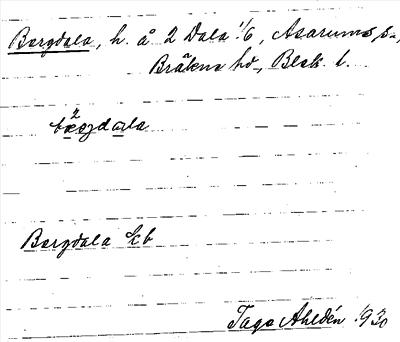 Bergdala, h. å 2 Dala 1/6, Asarums s.,
Bräkne hd., Blek. l.
Bergdala Ekb
Tage Ahldén 1930